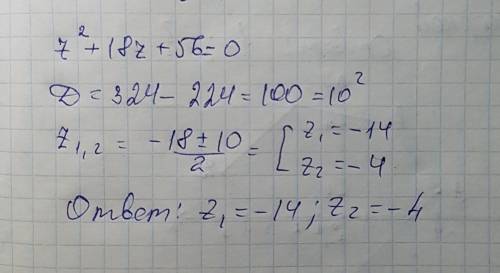 z² + 18z + 56 = 0
D = 324 - 224 = 100 = 10²
z₁,₂ = (-18 ± 10)/2 = [ z₁ = -14
z₂ = -4
Ответ: z₁ = -14 ; z₂ = -4